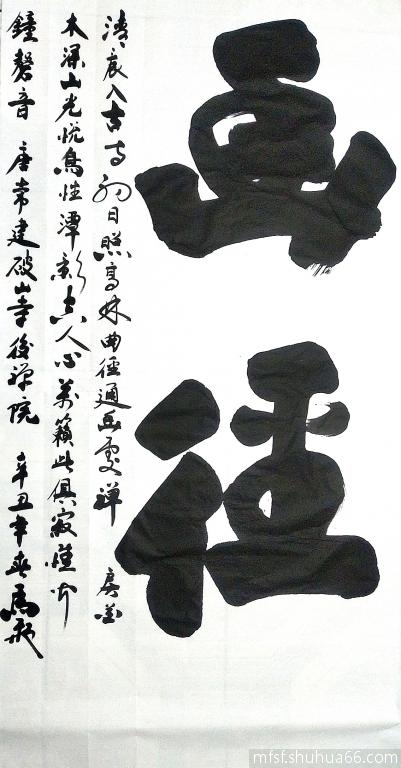 幽徑
清晨入古寺初日照高林曲徑通幽處禪房花
木深山光悦鳥性潭影空人心萬籟此俱寂惟聞
鐘磬音 唐常建破山寺後禪院 辛丑年春
mfsf.shuhua66.com